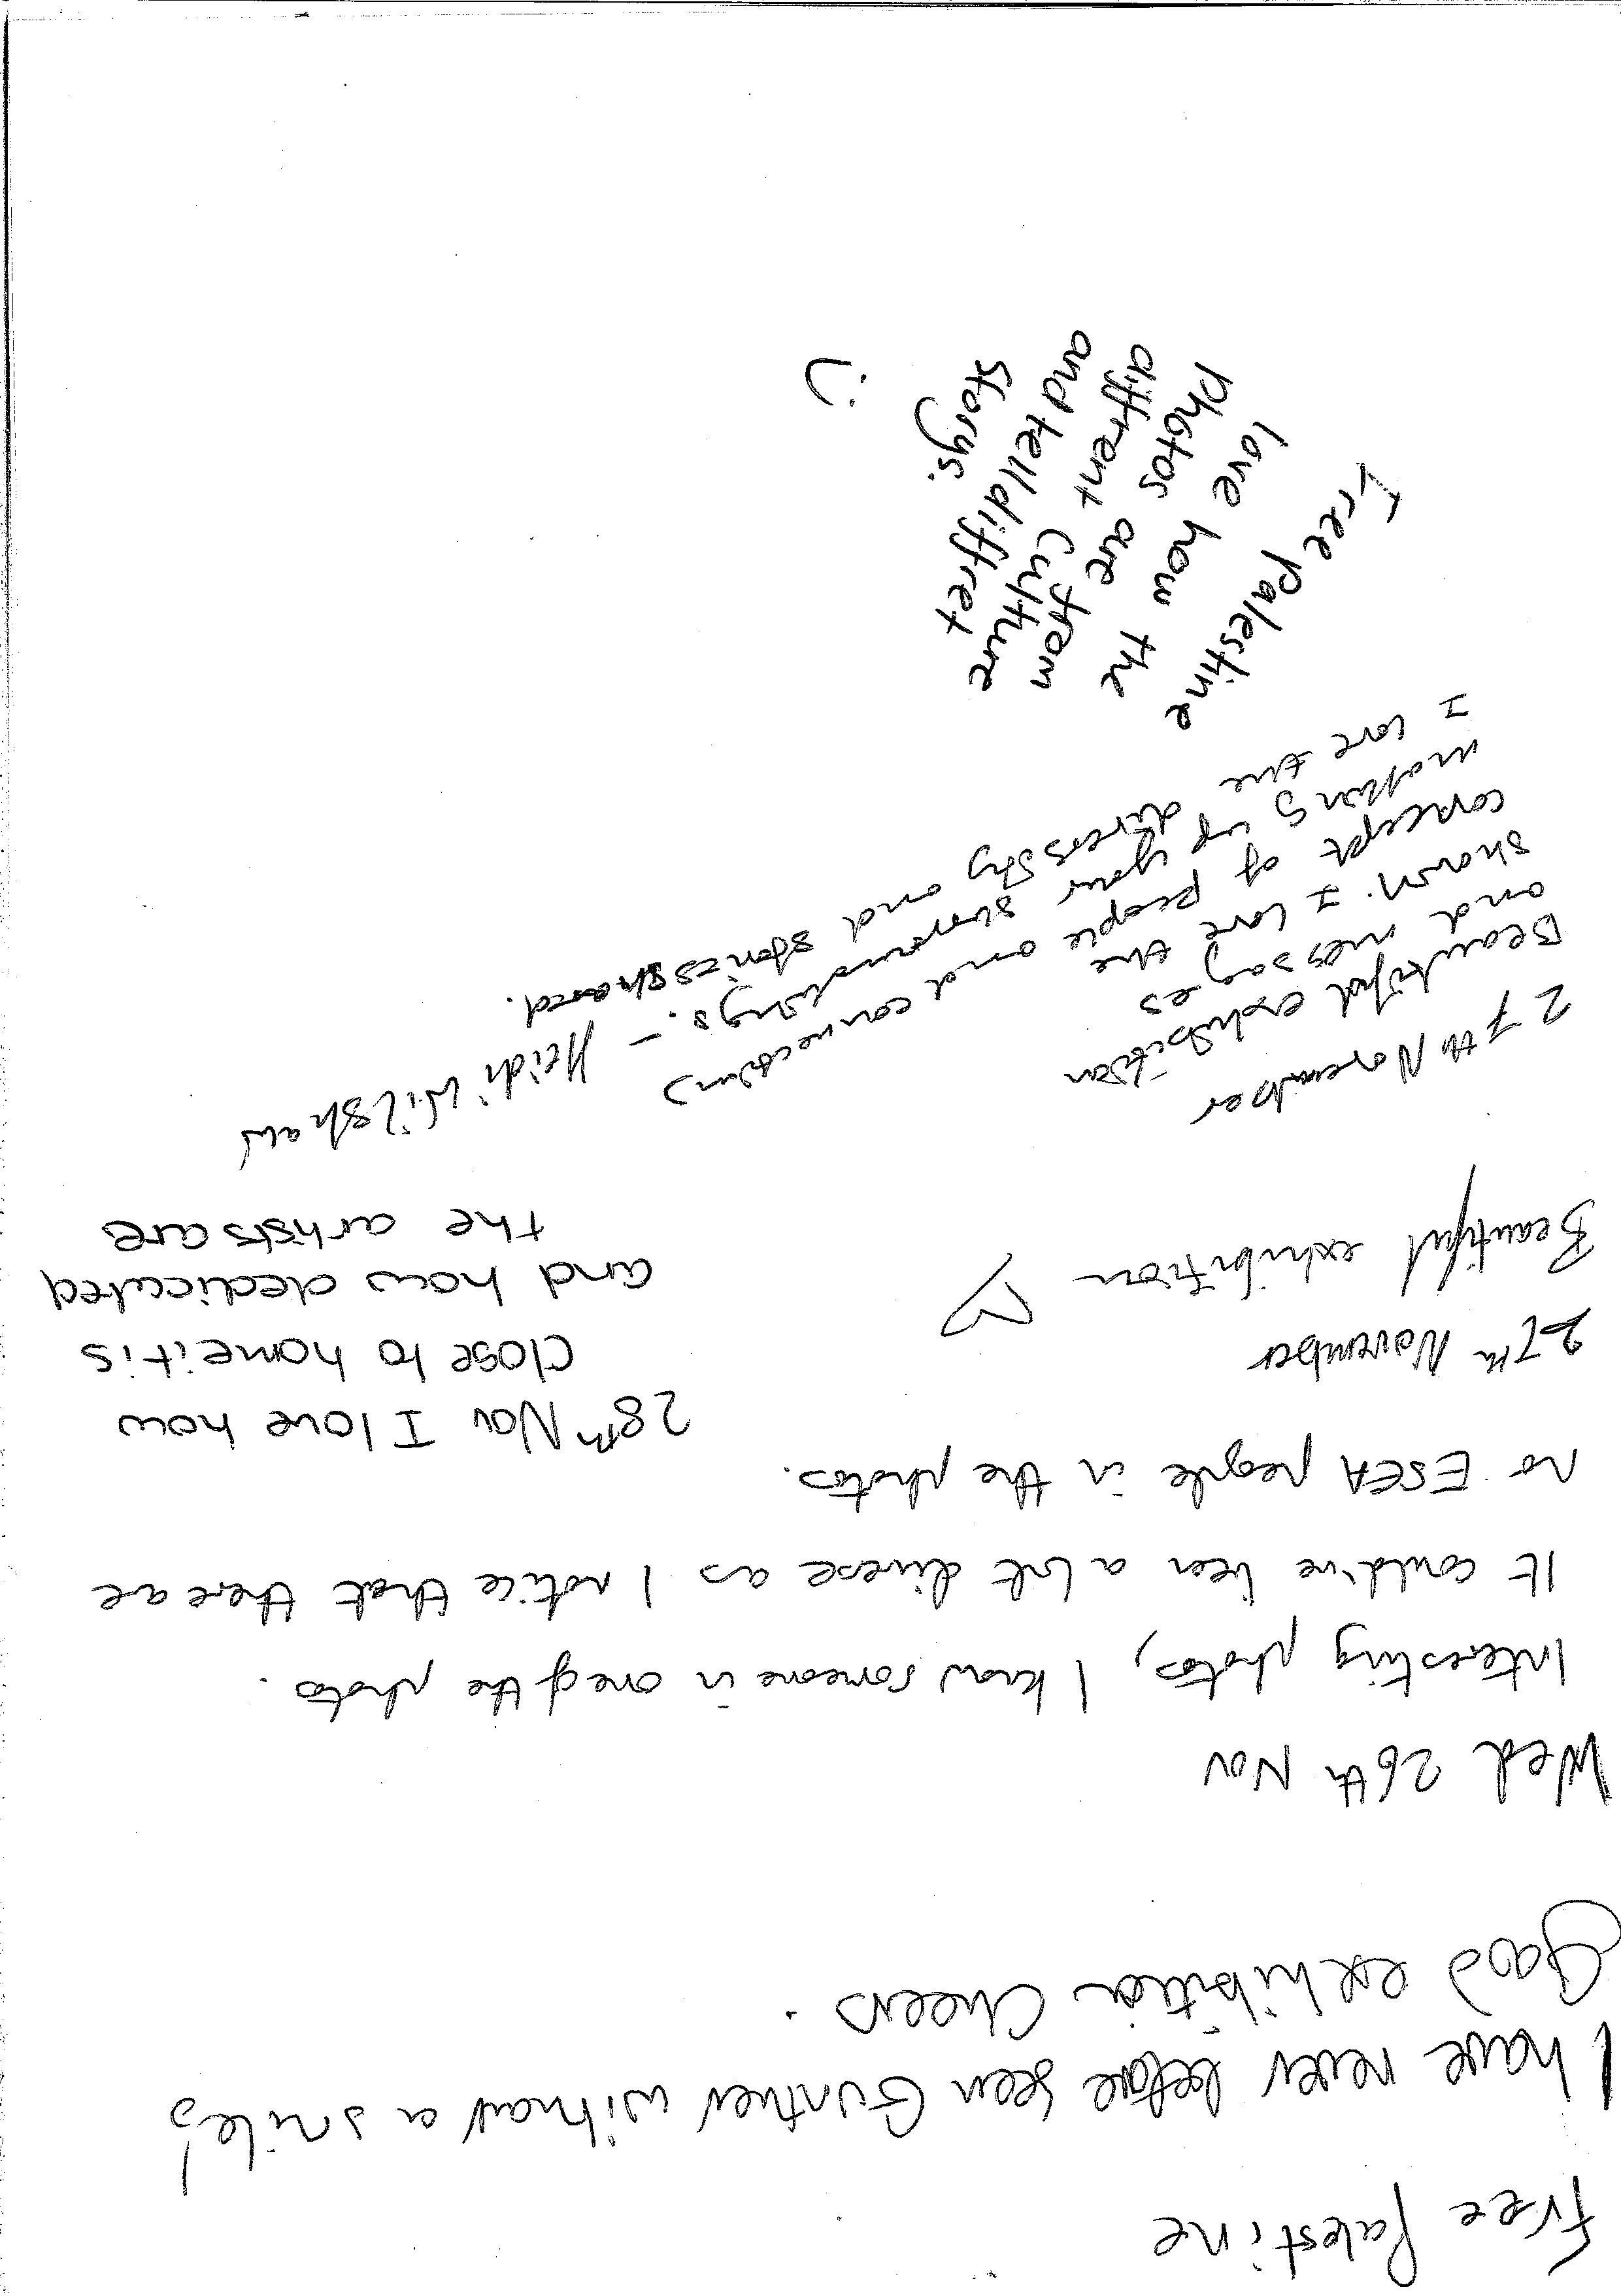 Free Palestine
I have never before seen Gunther without a smile!
Good exhibition Cheers.
Wed 26th Nov
Interesting photos, I know someone in one of the photos.
It could've been a lot diverse as I notice that there are
no ESEA people in the photos.
28th Nov I love how
close to home it is
and how dedicated
the artists are
27th November
Beautiful exhibition ♡
27th November
Beautiful exhibition
and messages
shown. I love the
concept of people and connection
making up your surroundings.
I love the diversity and stories shared.
- Heidi Wilshaw
Free Palestine
love how the
photos are from
diffrent culture
and tell diffret
storys.
:)